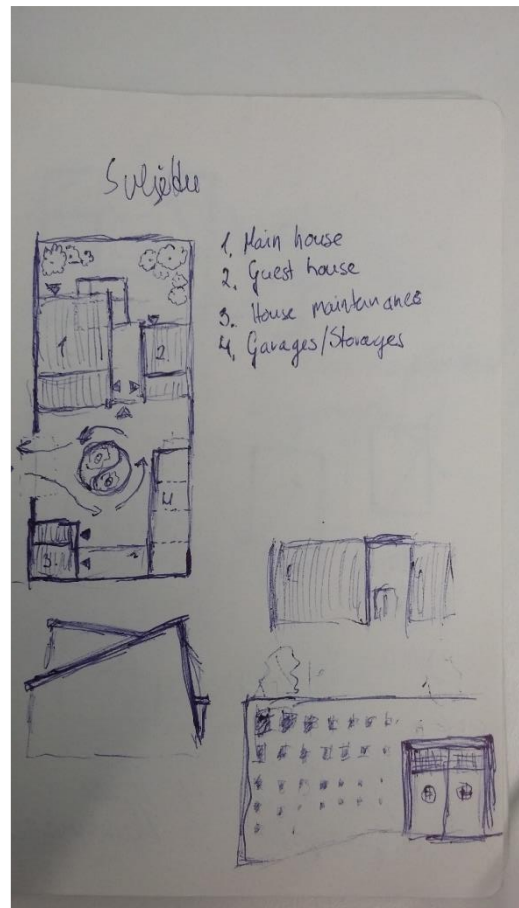 1. Main house
2. Guest house
3. House maintenances
4. Garages/Storages
1
2
3
4